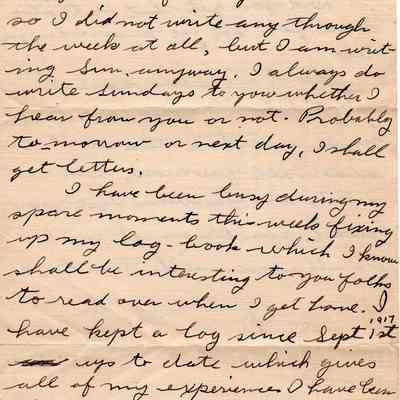 so I did not write any through
the week at all, but I am writ-
ing Sun. anyway. I always do
write Sundays to you whether I
hear from you or not. Probably
to-morrow or next day, I shall
get letters.
I have been busy during my
spare moments this week fixing
up my log-book which I know
shall be interesting to you folks
to read over when I get home. I
1917
have kept a log since Sept 1st
up to date which gives
all of my experiences I have been